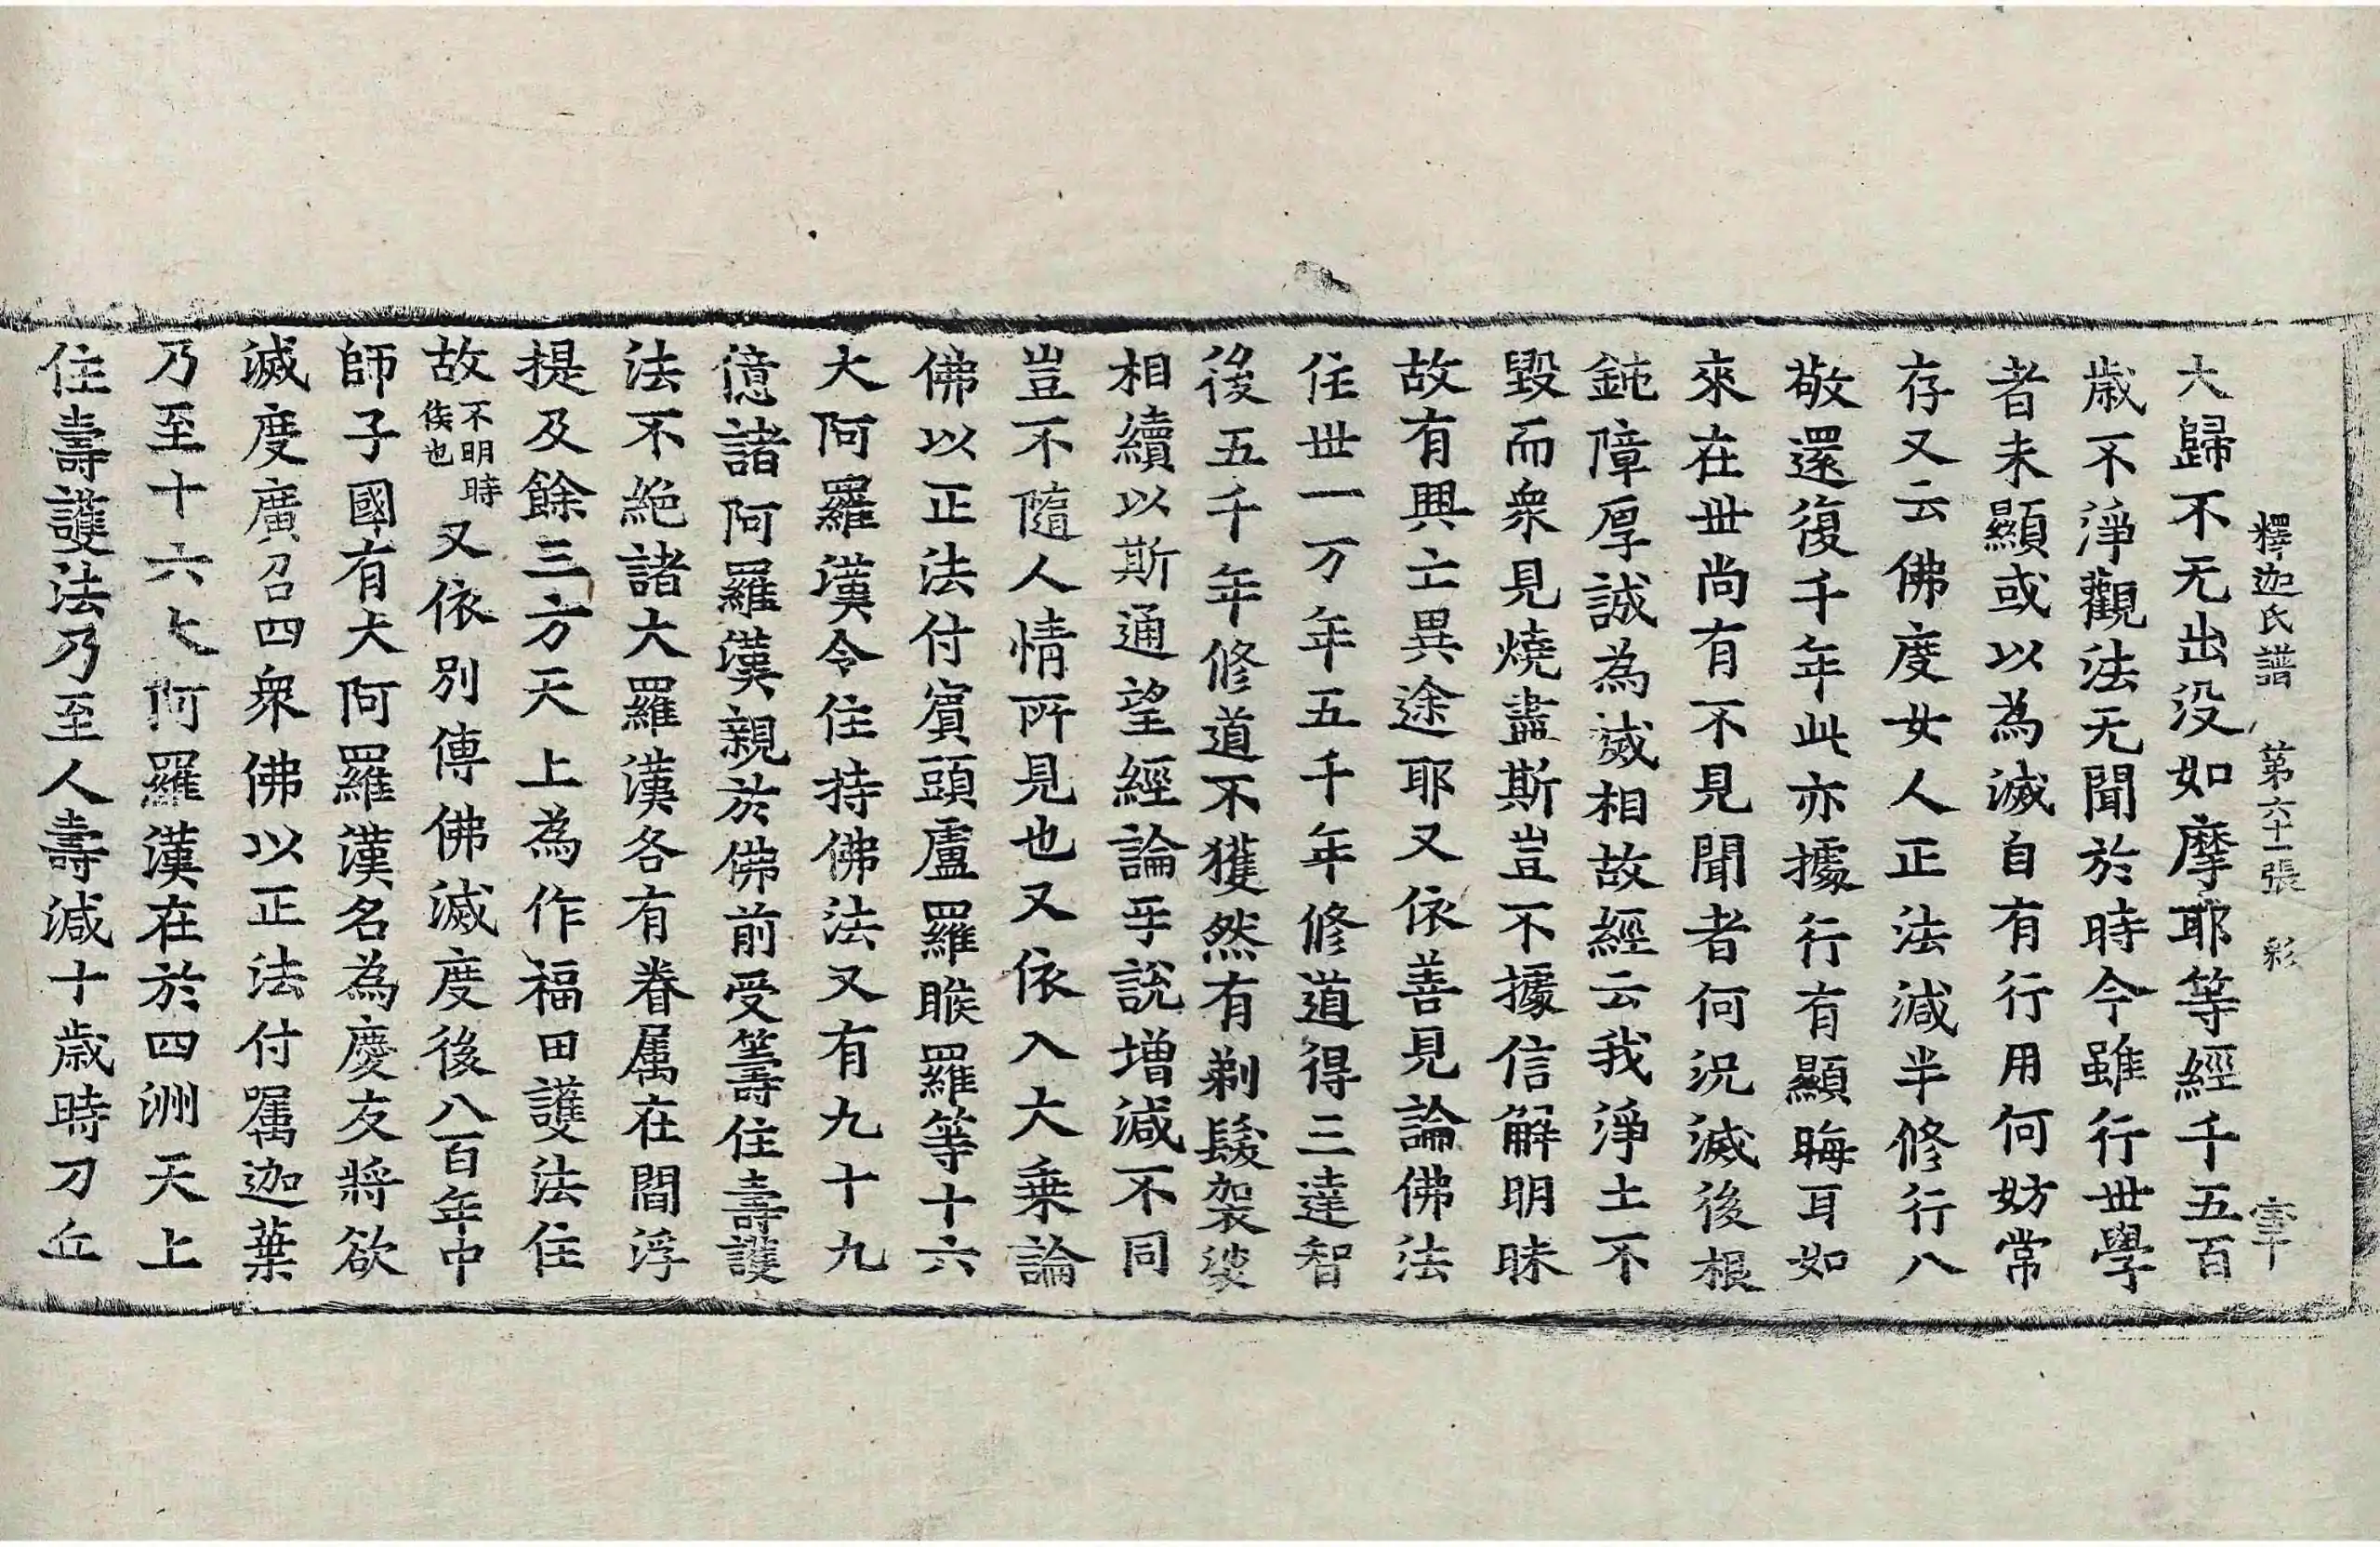 釋迦氏譜 第六十一張 彩
大歸不无出没如摩耶等經千五百
歲不淨觀法无聞於時今雖行世學
者未顯或以為滅自有行用何妨常
存又云佛度女人正法減半修行八
敬還復千年此亦據行有顯晦耳如
來在世尚有不見聞者何況滅後根
鈍障厚誠為滅相故經云我淨土不
毀而衆見燒盡斯豈不據信解明昧
故有興亡異途耶又依善見論佛法
住世一万年五千年修道得三達智
後五千年修道不獲然有剃髮袈裟
相續以斯通望經論乎說增減不同
豈不隨人情所見也又依入大乗論
佛以正法付賓頭盧羅睺羅等十六
大阿羅漢令住持佛法又有九十九
億諸阿羅漢親於佛前受籌住壽護
法不絶諸大羅漢各有眷属在閻浮
提及餘三方天上為作福田護法住
故不明時候也又依別傳佛滅度後八百年中
師子國有大阿羅漢名為慶友將欲
滅度廣召四衆佛以正法付嘱迦葉
乃至十六大阿羅漢在於四洲天上
住壽護法乃至人壽減十歲時刀丘